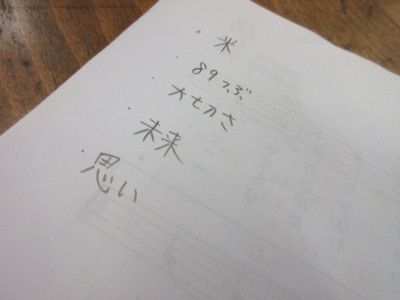 ・米
・89つぶ
・大切さ
・未来
・思い